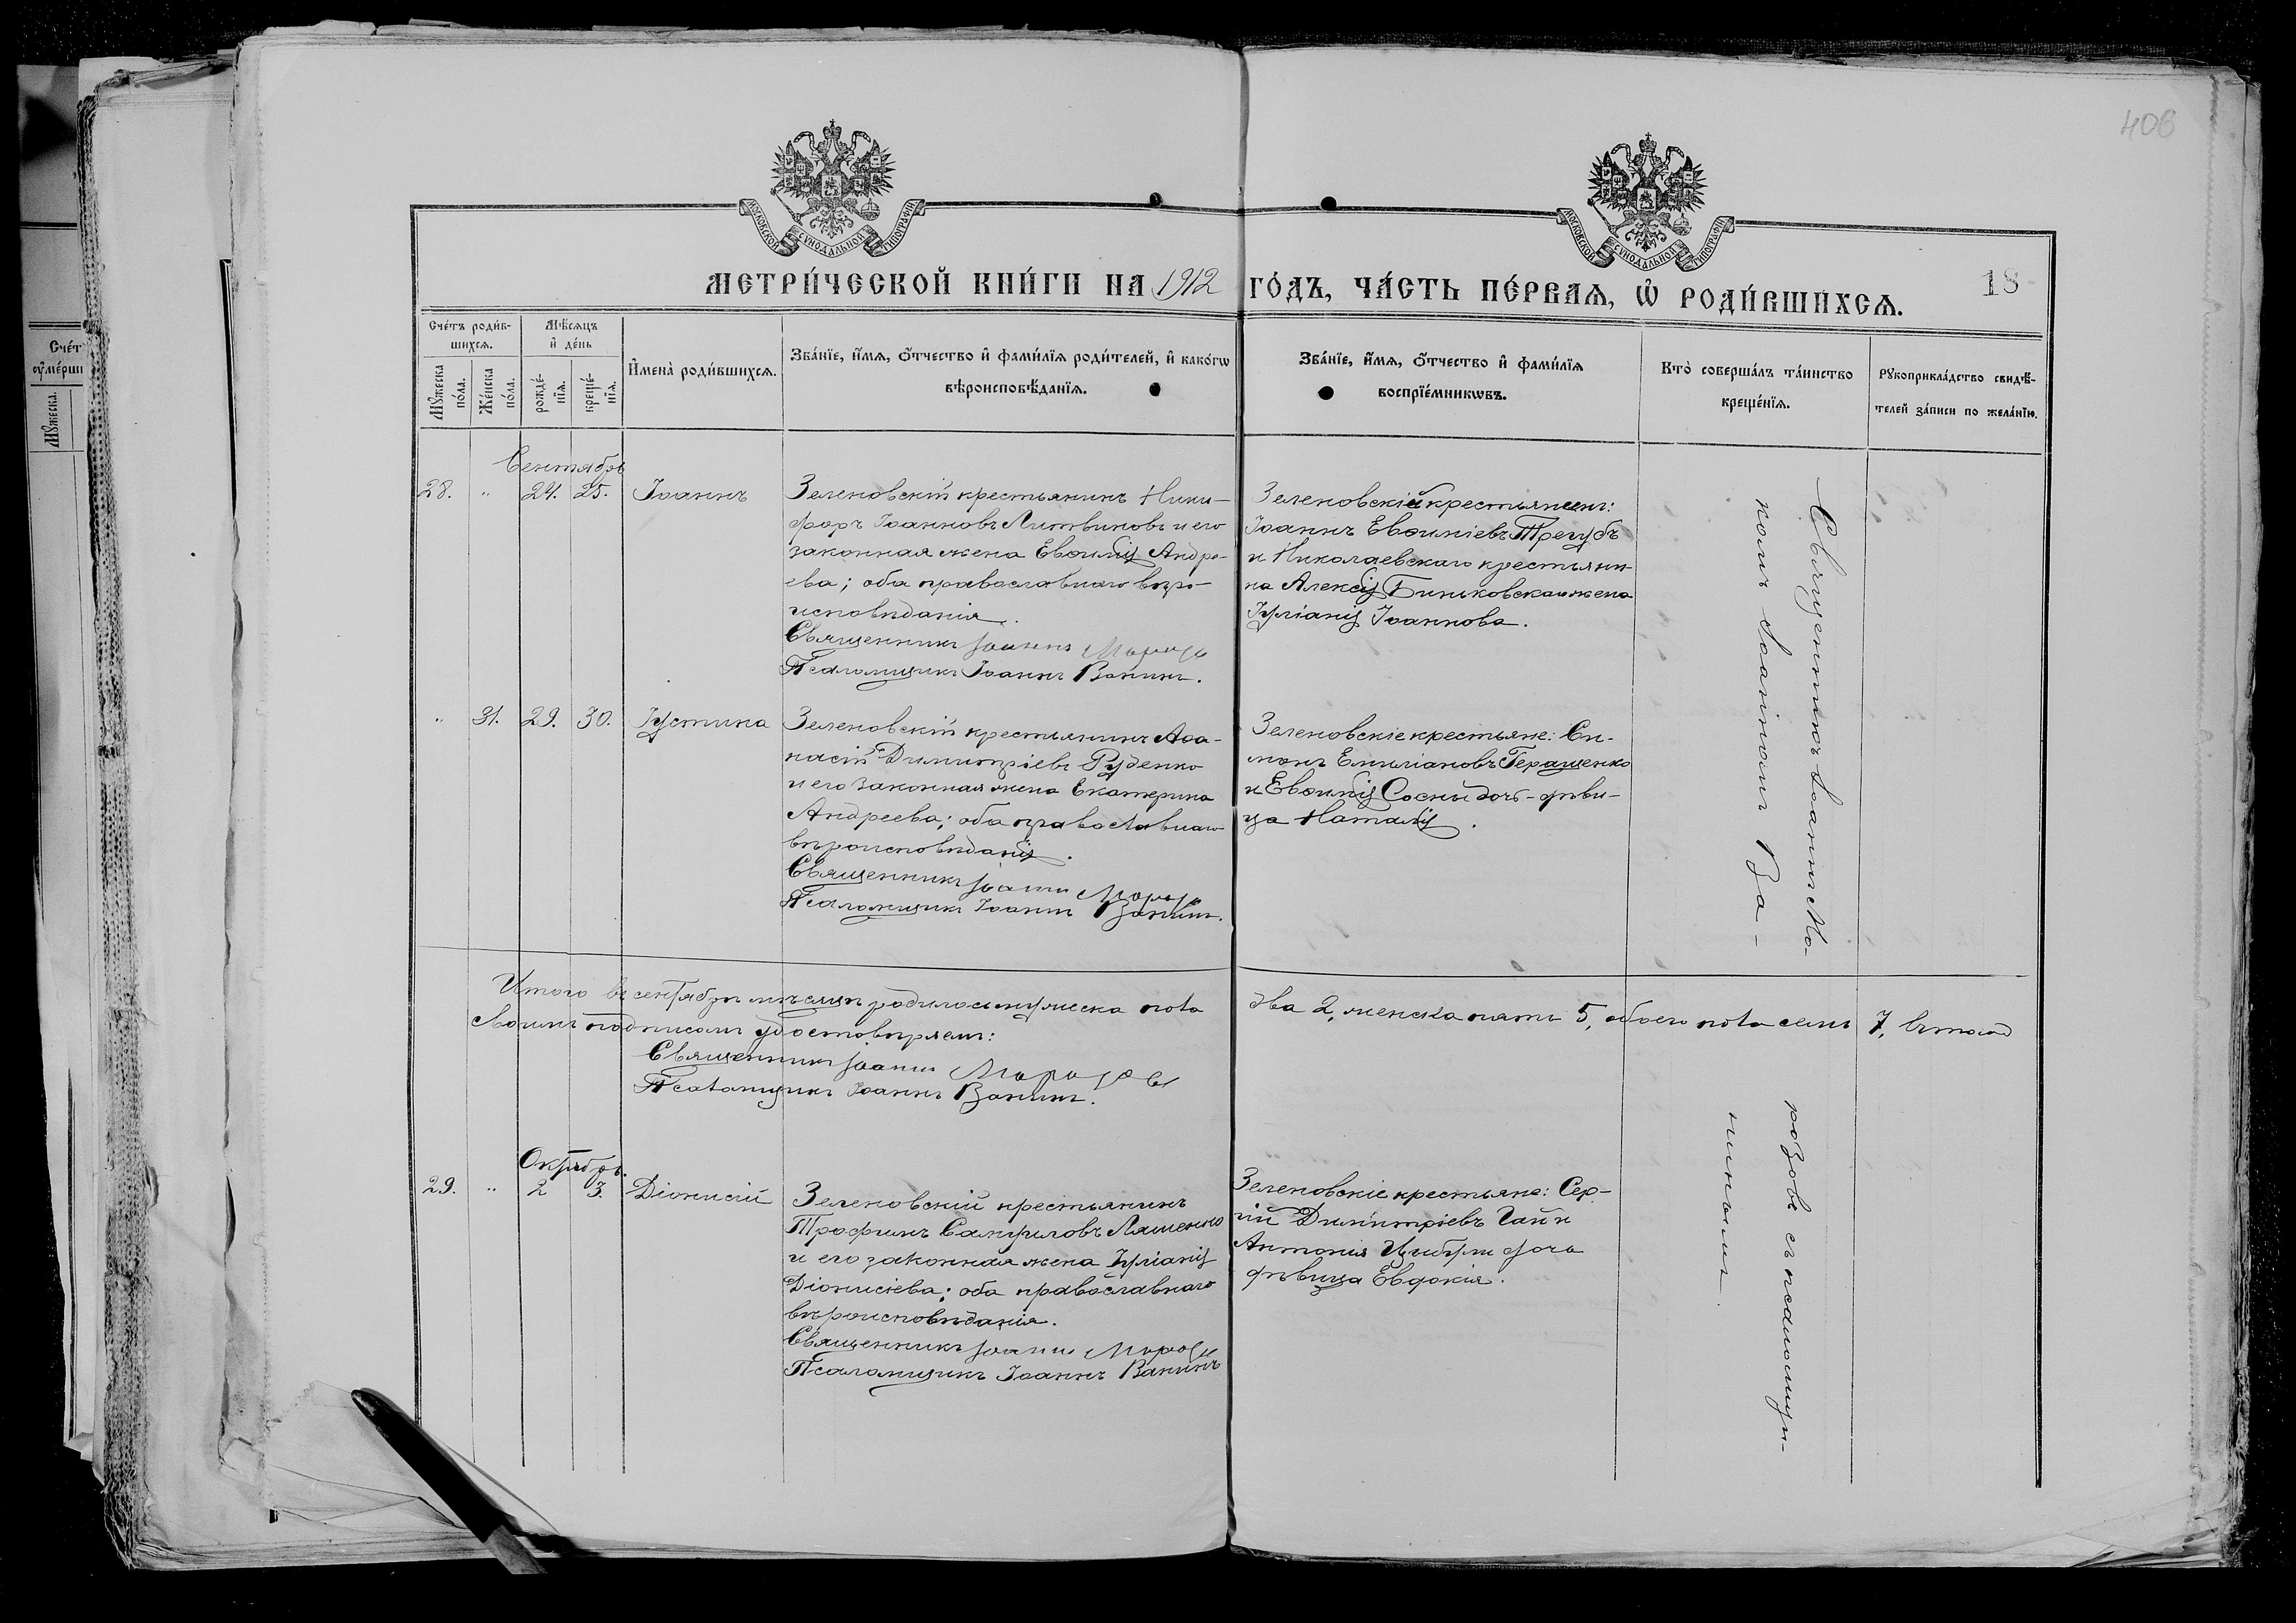 406
МОСКОВСКОЙ СѴНОДАЛЬНОЙ ТИПОГРАФІИ
МОСКОВСКОЙ СѴНОДАЛЬНОЙ ТИПОГРАФІИ
МЕТРИ́ЧЕСКОЙ КНИ́ГИ НА 1912 ГО́ДЪ, ЧА́СТЬ ПЕ́РВАЯ, Ѡ҆ РОДИ́ВШИХСЯ. 18
Сче́тъ роди́в-
шихся.
Мꙋ́жеска по́ла.
Же́нска по́ла.
Мѣ́сяцъ и҆ де́нь
рожде́-
нїя.
креще́-
нїя.
И҆мена̀ роди́вшихся.
Зва́нїе, и҆́мя, о҆́тчество и҆ фами́лїя роди́телей, и҆ како́гѡ
вѣроисповѣ́данїя.
Зва́нїе, и҆́мя, о҆́тчество и҆ фами́лїя
воспрїе́мникѡвъ.
Кто̀ соверша́лъ та́инство
креще́нїя.
Рꙋкоприкла́дство свидѣ́-
телей за́писи по жела́нїю.
Сче́т
ꙋ҆ме́рши
Мꙋ́жеска.
Сентябрь
28. " 24. 25. Іоаннъ
Зеленовскій крестьянинъ Ники-
форъ Іоанновъ Литвиновъ и его
законная жена Евѳимія Андре-
ева; оба православнаго вѣро-
исповѣданія.
Священникъ Іоаннъ Морозовъ
Псаломщикъ Іоаннъ Ванинъ.
Зеленовскій крестьянинъ:
Іоаннъ Евѳиміевъ Трегубъ
и Николаевскаго крестьяни-
на Алексія жена
Іуліанія Іоаннова.
" 31. 29. 30. Іустина
Зеленовскій крестьянинъ Аѳа-
насій Димитріевъ Руденко
и его законная жена Екатерина
Андреева; оба православнаго
вѣроисповѣданія.
Священникъ Іоаннъ Морозовъ
Псаломщикъ Іоаннъ Ванинъ.
Зеленовскіе крестьяне: Си-
монъ Емиліановъ Геращенко
и Евѳимія Сосны дочь-дѣви-
ца Наталія.
Итого въ сентябрѣ мѣсяцѣ родилось мужеска пола два 2, женска пять 5, обоего пола семь 7, въ томъ
своимъ подписомъ удостовѣряемъ:
Священникъ Іоаннъ Морозовъ
Псаломщикъ Іоаннъ Ванинъ.
Октябрь.
29. " 2 3. Діонисій
Зеленовскій крестьянинъ
Трофимъ Ляшенко
и его законная жена Іуліанія
Діонисіева; оба православнаго
вѣроисповѣданія.
Священникъ Іоаннъ Морозовъ
Псаломщикъ Іоаннъ Ванинъ
Зеленовскіе крестьяне: Сер-
гій Димитріевъ Гай и
Антонія Цыбули дочь
дѣвица Евдокія.
Священникъ Іоаннъ Мо-
розовъ съ псаломщи-
комъ Іоанномъ Ва-
нинымъ.